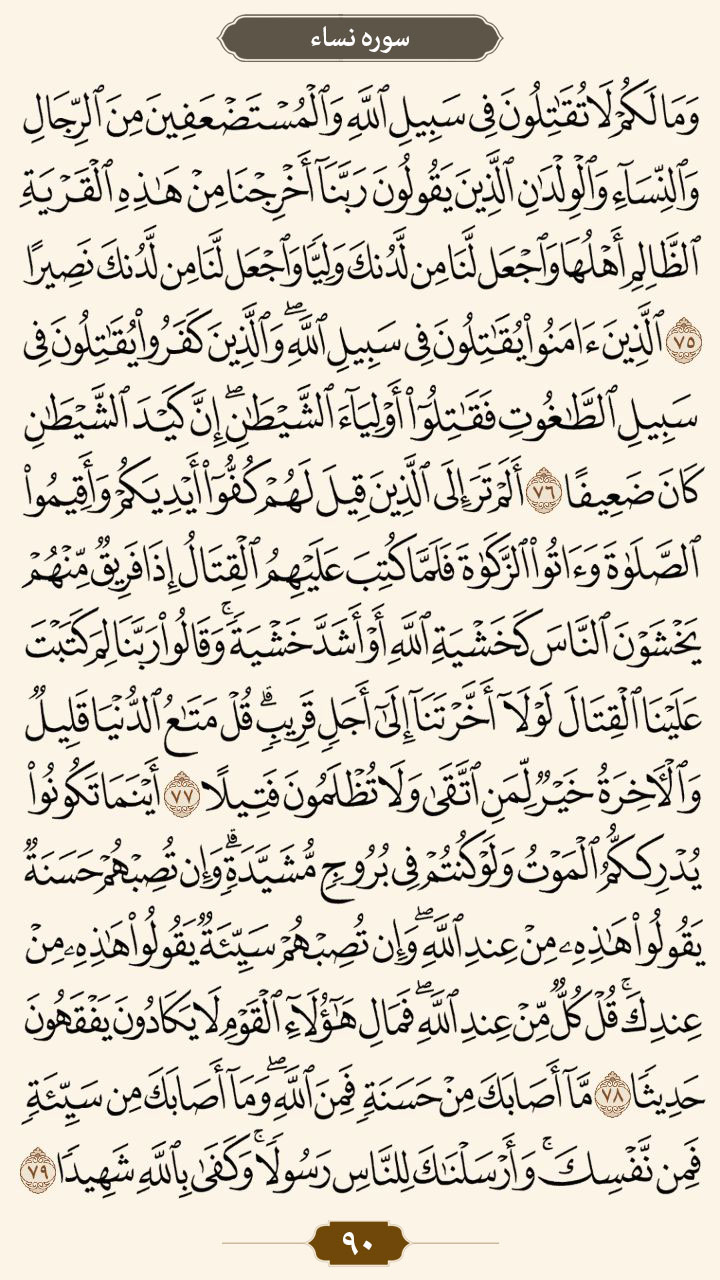 سوره نساء
وَمَا لَكُمْ لَا تُقَٰتِلُونَ فِى سَبِيلِ ٱللَّهِ وَٱلْمُسْتَضْعَفِينَ مِنَ ٱلرِّجَالِ
وَٱلنِّسَآءِ وَٱلْوِلْدَٰنِ ٱلَّذِينَ يَقُولُونَ رَبَّنَآ أَخْرِجْنَا مِنْ هَٰذِهِ ٱلْقَرْيَةِ
ٱلظَّالِمِ أَهْلُهَا وَٱجْعَل لَّنَا مِن لَّدُنكَ وَلِيًّا وَٱجْعَل لَّنَا مِن لَّدُنكَ نَصِيرًا
٧٥ ٱلَّذِينَ ءَامَنُوا۟ يُقَٰتِلُونَ فِى سَبِيلِ ٱللَّهِۖ وَٱلَّذِينَ كَفَرُوا۟ يُقَٰتِلُونَ فِى
سَبِيلِ ٱلطَّٰغُوتِ فَقَٰتِلُوٓا۟ أَوْلِيَآءَ ٱلشَّيْطَٰنِۖ إِنَّ كَيْدَ ٱلشَّيْطَٰنِ
كَانَ ضَعِيفًا ٧٦ أَلَمْ تَرَ إِلَى ٱلَّذِينَ قِيلَ لَهُمْ كُفُّوٓا۟ أَيْدِيَكُمْ وَأَقِيمُوا۟
ٱلصَّلَوٰةَ وَءَاتُوا۟ ٱلزَّكَوٰةَ فَلَمَّا كُتِبَ عَلَيْهِمُ ٱلْقِتَالُ إِذَا فَرِيقٌ مِّنْهُمْ
يَخْشَوْنَ ٱلنَّاسَ كَخَشْيَةِ ٱللَّهِ أَوْ أَشَدَّ خَشْيَةًۚ وَقَالُوا۟ رَبَّنَا لِمَ كَتَبْتَ
عَلَيْنَا ٱلْقِتَالَ لَوْلَآ أَخَّرْتَنَآ إِلَىٰٓ أَجَلٍ قَرِيبٍۗ قُلْ مَتَٰعُ ٱلدُّنْيَا قَلِيلٌ
وَٱلْءَاخِرَةُ خَيْرٌ لِّمَنِ ٱتَّقَىٰ وَلَا تُظْلَمُونَ فَتِيلًا ٧٧ أَيْنَمَا تَكُونُوا۟
يُدْرِككُّمُ ٱلْمَوْتُ وَلَوْ كُنتُمْ فِى بُرُوجٍ مُّشَيَّدَةٍۗ وَإِن تُصِبْهُمْ حَسَنَةٌ
يَقُولُوا۟ هَٰذِهِۦ مِنْ عِندِ ٱللَّهِۖ وَإِن تُصِبْهُمْ سَيِّئَةٌ يَقُولُوا۟ هَٰذِهِۦ مِنْ
عِندِكَۚ قُلْ كُلٌّ مِّنْ عِندِ ٱللَّهِۖ فَمَالِ هَٰٓؤُلَآءِ ٱلْقَوْمِ لَا يَكَادُونَ يَفْقَهُونَ
حَدِيثًا ٧٨ مَّآ أَصَابَكَ مِنْ حَسَنَةٍ فَمِنَ ٱللَّهِۖ وَمَآ أَصَابَكَ مِن سَيِّئَةٍ
فَمِن نَّفْسِكَۚ وَأَرْسَلْنَٰكَ لِلنَّاسِ رَسُولًاۚ وَكَفَىٰ بِٱللَّهِ شَهِيدًا ٧٩
٩٠